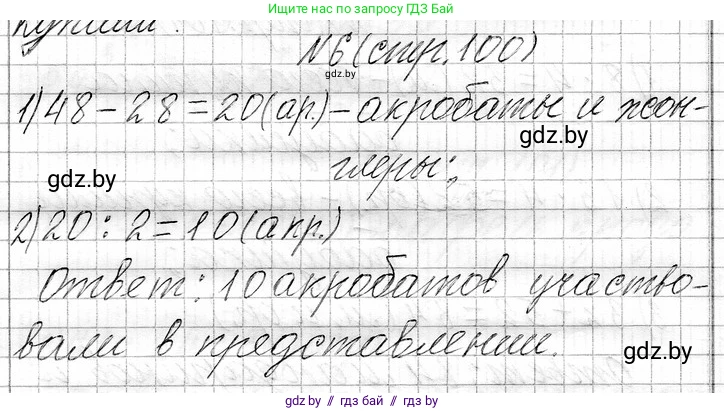 Ищите нас по запросу ГДЗ Бай
купили.
№6 (стр. 100)
gdz.by
1) 48 - 28 = 20 (ар.) - акробаты и жон-
gdz.by
глеры;
gdz.by
2) 20 : 2 = 10 (акр.)
Ответ: 10 акробатов участво-
вали в представлении.
gdz.by
gdz.by // гдз бай // gdz.by